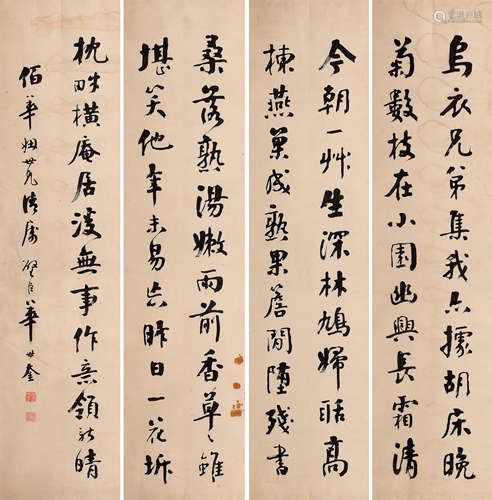 烏衣兄弟集我亦據胡床晚
菊數枝在小園幽興長霜清
今朝一艸生深林鳩婦聒高
棟燕巢成熟果簷間墮殘書
桑落熟湯嫩雨前香草〻雖
堪笑他年未易忘昨日一花坼
枕畔橫庵居無事作意領新晴
佰華姻世兄清屬 璧臣華世奎